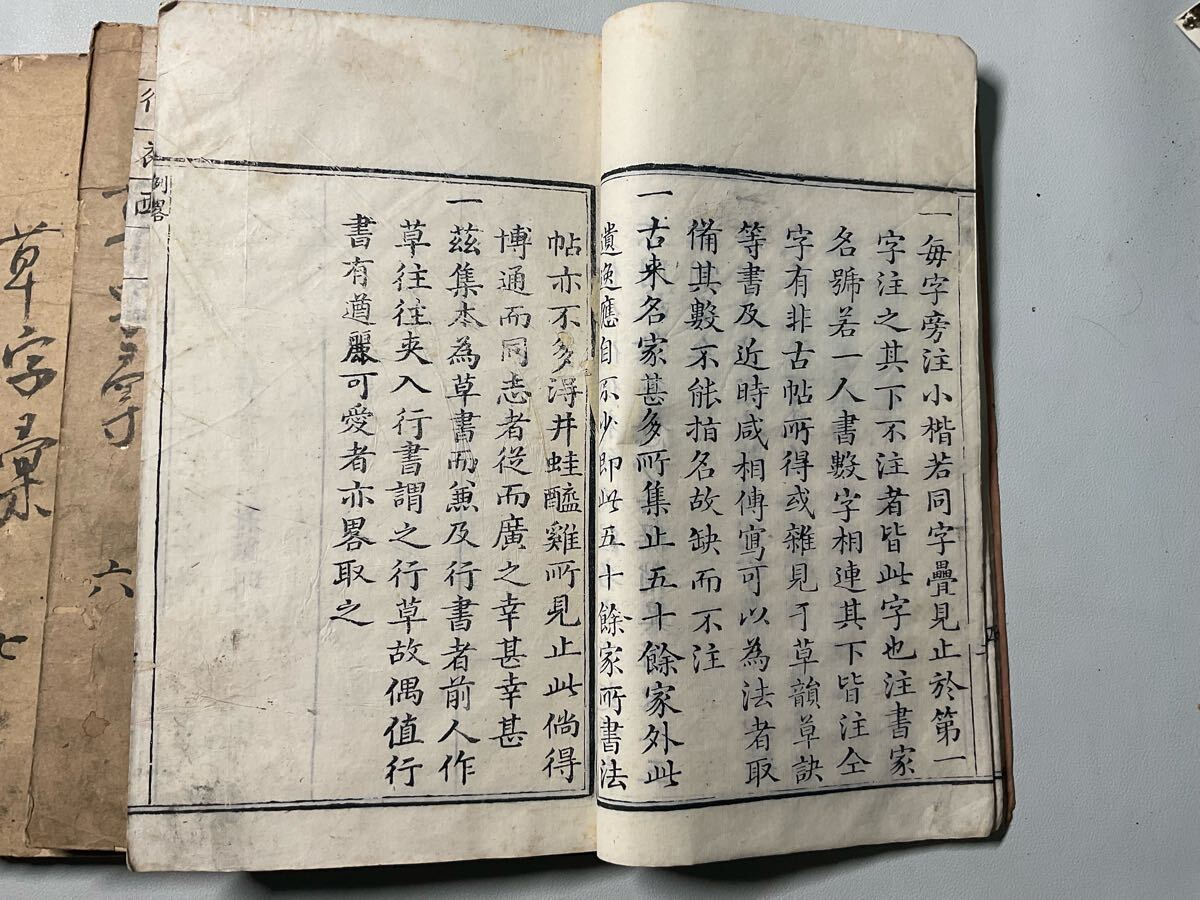 一每字旁注小楷若同字疊見止於第一
字注之其下不注者皆此字也注書家
名號若一人書數字相連其下皆注仝
字有非古帖所得或雜見于草韻草訣
等書及近時咸相傳寫可以為法者取
備其數不能指名故缺而不注
一古来名家甚多所集止五十餘家外此
遺逸應自不少即此五十餘家所書法
帖亦不多得井蛙醯雞所見止此倘得
博通而同志者從而廣之幸甚幸甚
一茲集本為草書而兼及行書者前人作
草往往夾入行書謂之行草故偶值行
書有遒麗可愛者亦畧取之
例畧
六
草字彙
七